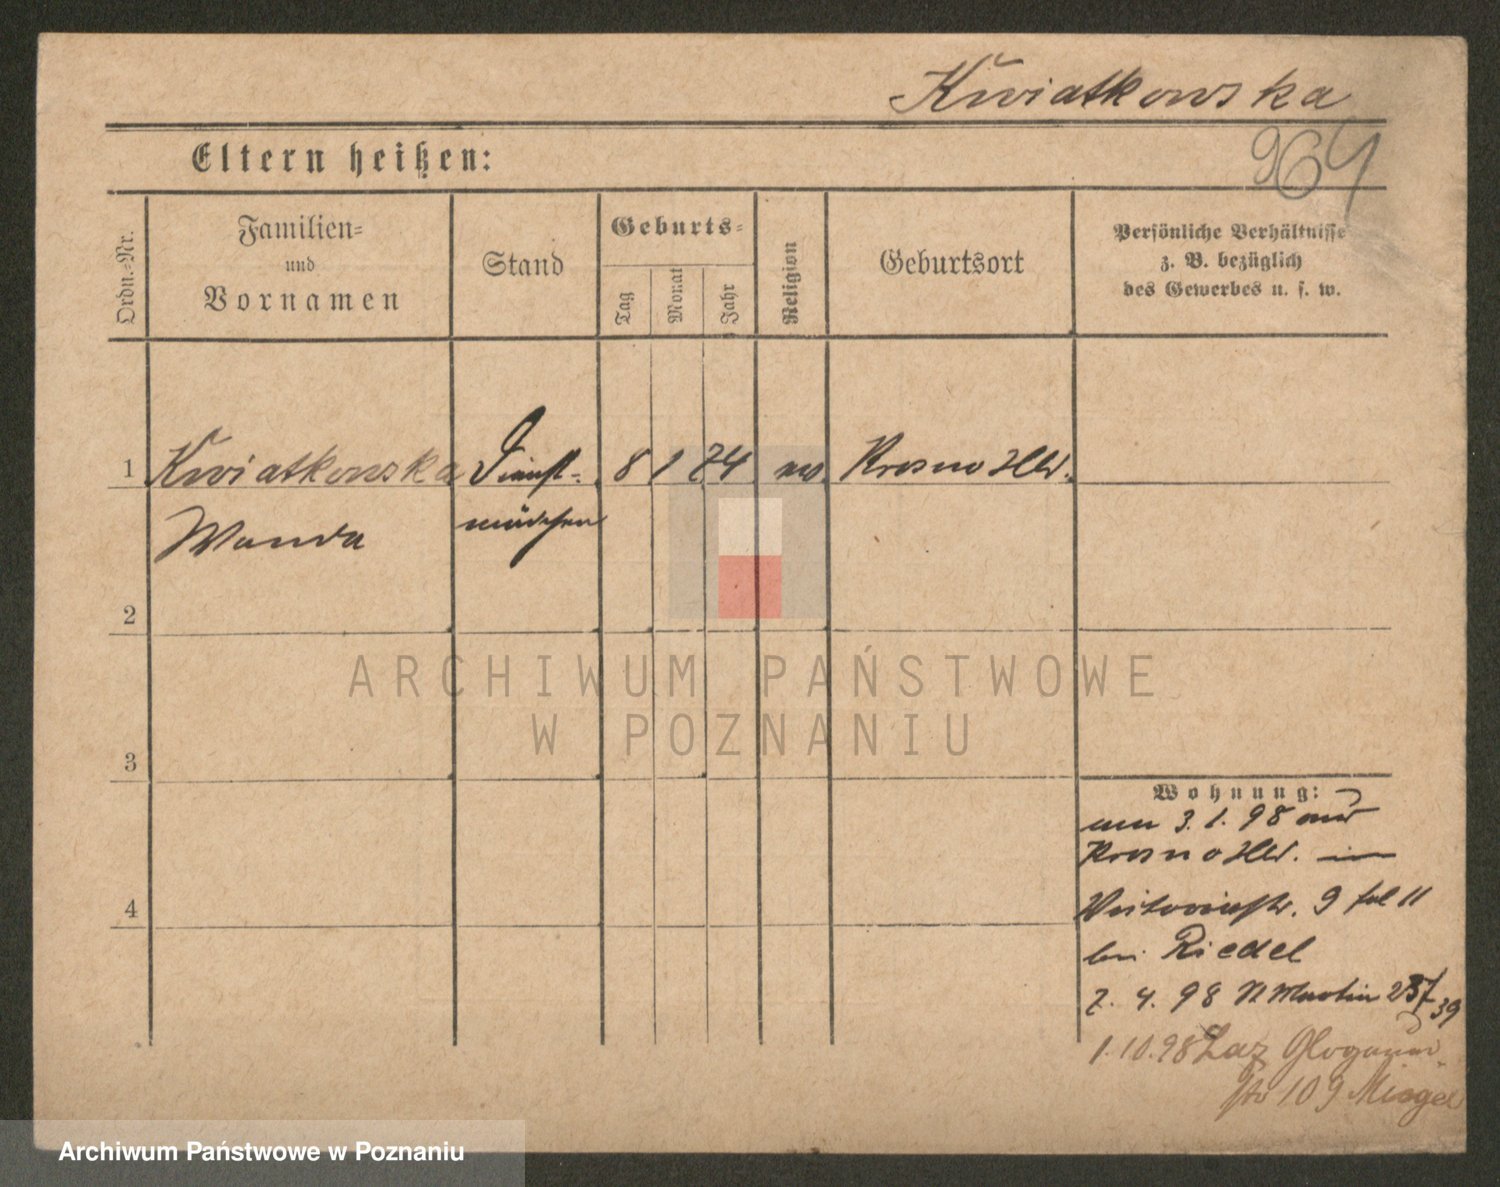 Kwiatkowska
964
Eltern heißen:
Ordn.-Nr.
Familien-
und
Vornamen
Stand
Geburts-
Tag
Monat
Jahr
Religion
Geburtsort
Persönliche Verhältnisse
z. B. bezüglich
des Gewerbes u. s. w.
1
Kwiatkowska
Dienst-
8 1 74
Krosno Hld.
Wanda
mädchen
2
ARCHIWUM PAŃSTWOWE
W POZNANIU
3
Wohnung:
3. 1. 98 aus
Krosno Hld. in
Victoriastr. 9
bei Riedel
2. 4. 98 St Martin
4
1.10.98 Laz Glogauer
Str 109
Archiwum Państwowe w Poznaniu